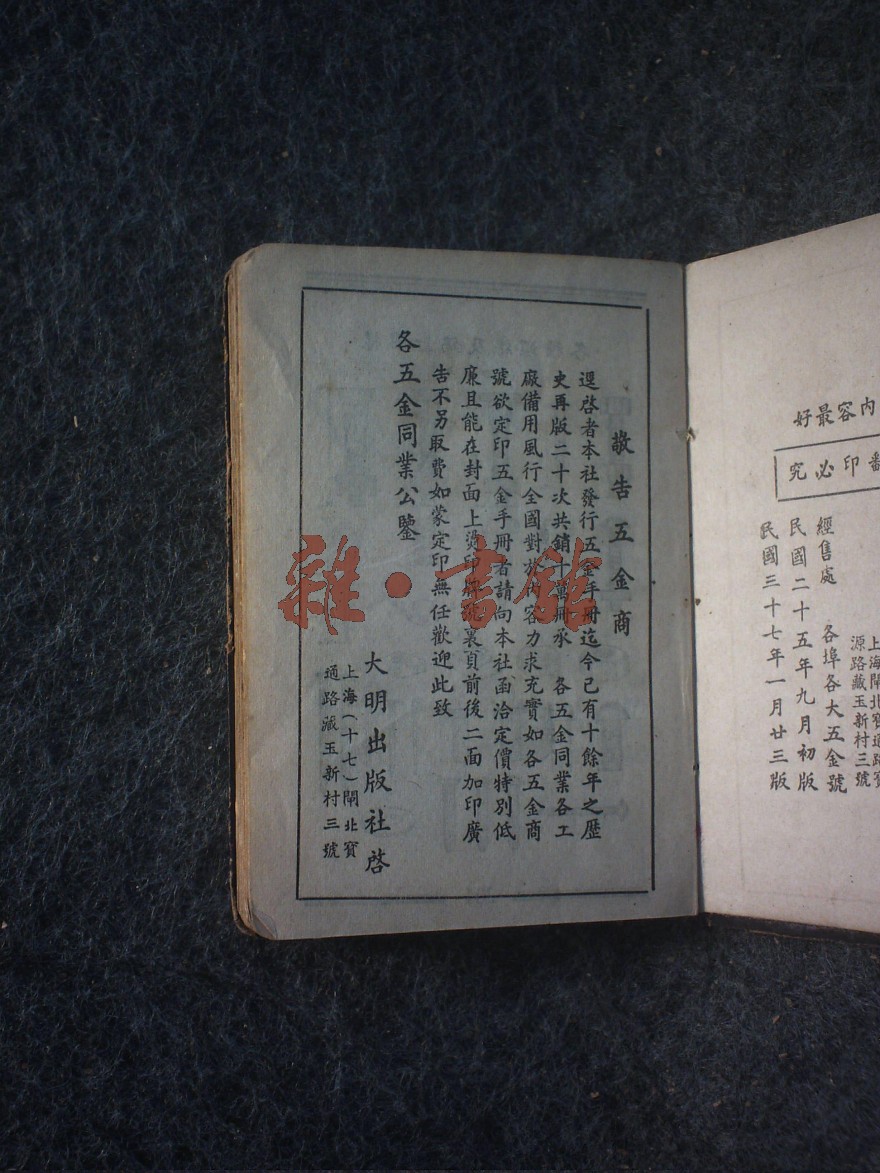 敬告五金商
逕啓者本社發行五金手冊迄今已有十餘年之歷
史再版二十次共銷十萬冊承 各五金同業各工
廠備用風行全國對於內容力求充實如各五金商
號欲定印五金手冊者請向本社函洽定價特別低
廉且能在封面上燙印牌號裏頁前後二面加印廣
告不另取費如蒙定印無任歡迎此致
各五金同業公鑒
大明出版社啓
上海(十七)閘北寶
通路藏玉新村三號
內容最好
翻印必究
上海閘北寶通路寶
源路藏玉新村三號
經售處 各埠各大五金號
民國二十五年九月初版
民國三十七年一月廿三版
雜·書館